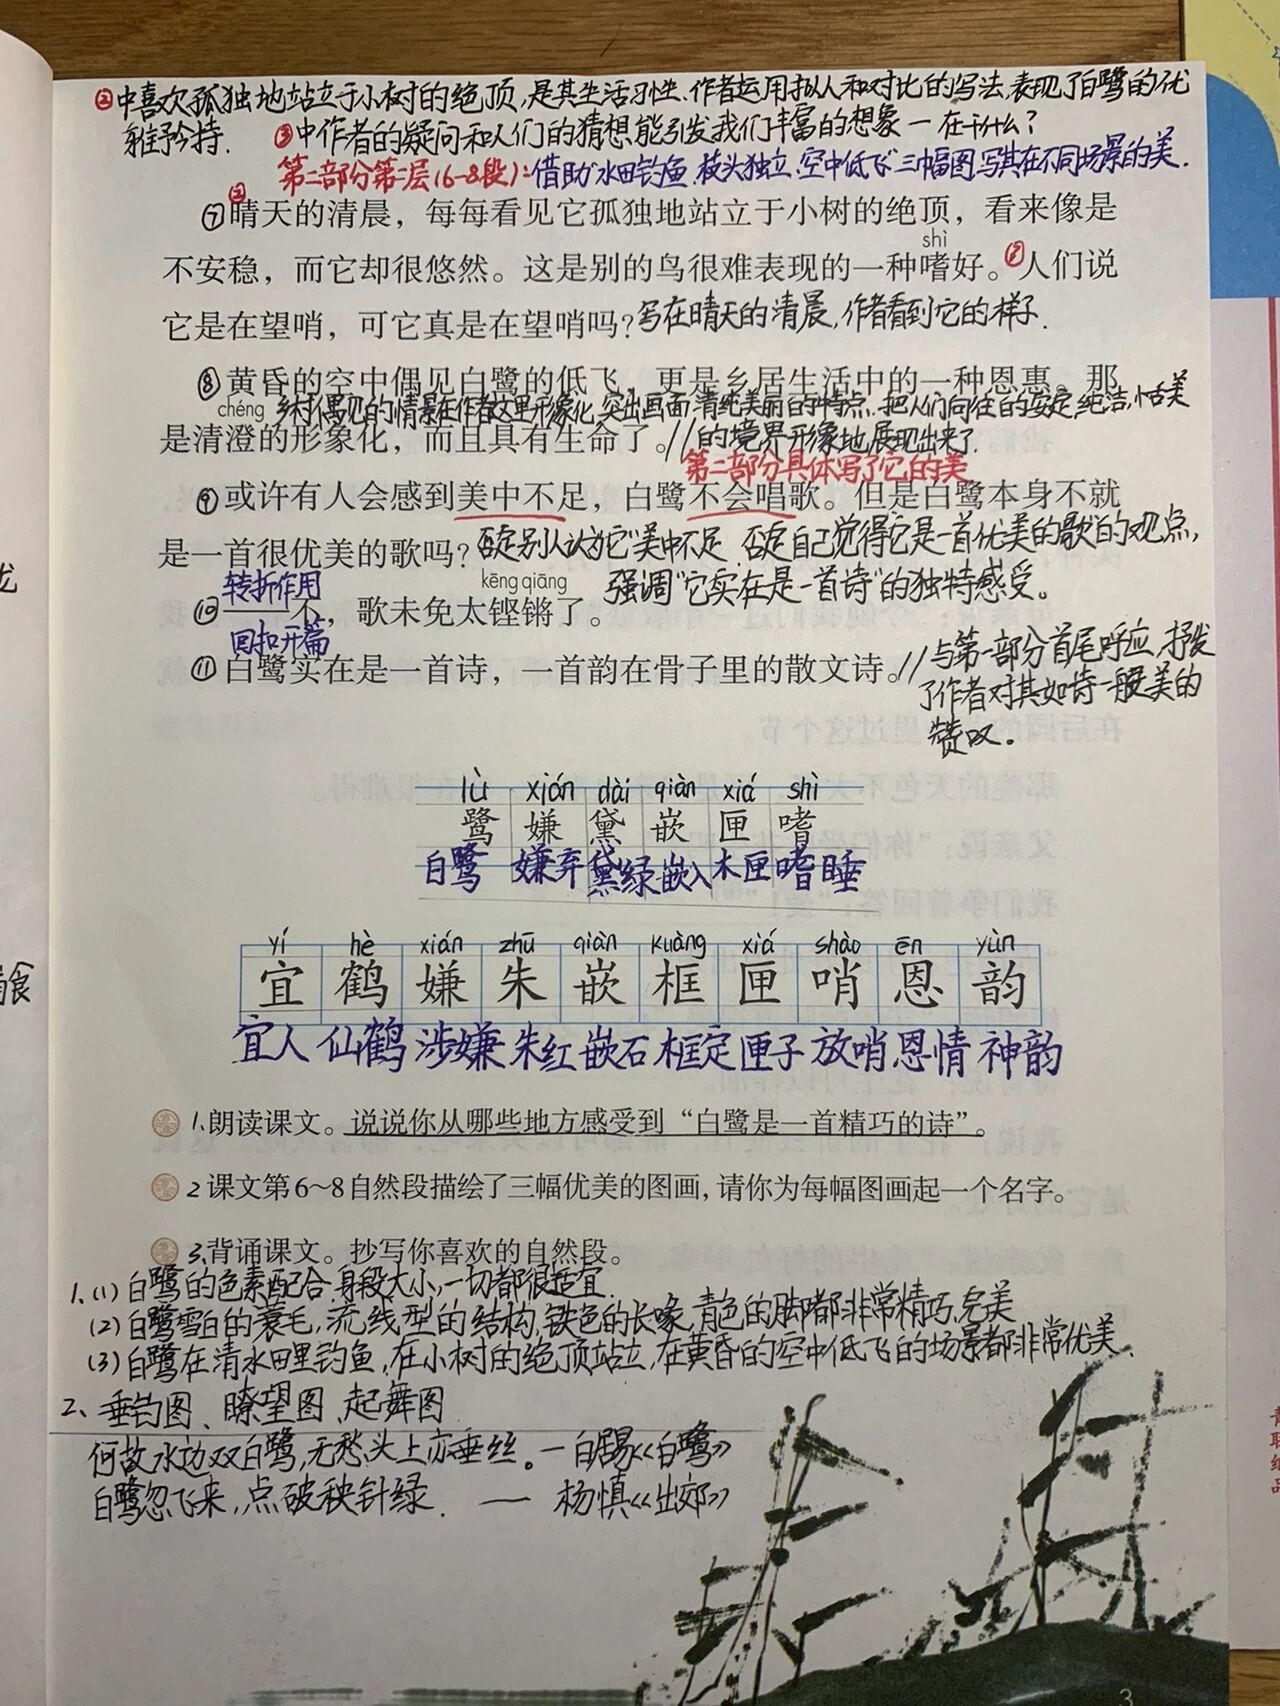 ②中喜欢孤独地站立于小树的绝顶,是其生活习性、作者运用拟人和对比的写法,表现了白鹭的优
雅矜持.
③中作者的疑问和人们的猜想,能引发我们丰富的想象一在干什么?
第二部分第二层(6-8段):借助"水田钓鱼、枝头独立、空中低飞"三幅图,写其在不同场景的美.
⑦晴天的清晨，每每看见它孤独地站立于小树的绝顶，看来像是
shì
不安稳，而它却很悠然。这是别的鸟很难表现的一种嗜好。人们说
它是在望哨，可它真是在望哨吗?写在晴天的清晨,作者看到它的样子.
⑧黄昏的空中偶见白鹭的低飞，更是乡居生活中的一种恩惠。那
chéng
乡村偶见的情景在作者这里形象化,突出画面清纯美丽的特点.把人们向往的安定,纯洁,恬美
是清澄的形象化，而且具有生命了。//的境界形象地展现出来了.
第二部分具体写了它的美
⑨或许有人会感到美中不足，白鹭不会唱歌。但是白鹭本身不就
是一首很优美的歌吗?否定别人认为它"美中不足,否定自己觉得它是一首优美的歌"的观点,
转折作用
kēng qiāng
强调"它实在是一首诗"的独特感受。
⑩——不，歌未免太铿锵了。
回扣开篇
⑪白鹭实在是一首诗，一首韵在骨子里的散文诗。//与第一部分首尾呼应,抒发
了作者对其如诗一般美的
赞叹.
lù xián dài qiàn xiá shì
鹭 嫌 黛 嵌 匣 嗜
白鹭 嫌弃 黛绿 嵌入 木匣 嗜睡
yí hè xián zhū qiàn kuàng xiá shào ēn yùn
宜 鹤 嫌 朱 嵌 框 匣 哨 恩 韵
宜人 仙鹤 涉嫌 朱红 嵌石 框定 匣子 放哨 恩情 神韵
1.朗读课文。说说你从哪些地方感受到“白鹭是一首精巧的诗”。
2课文第6～8自然段描绘了三幅优美的图画,请你为每幅图画起一个名字。
3.背诵课文。抄写你喜欢的自然段。
1、(1)白鹭的色素配合,身段大小,一切都很适宜.
(2)白鹭雪白的蓑毛,流线型的结构,铁色的长喙,青色的脚都非常精巧,完美
(3)白鹭在清水田里钓鱼,在小树的绝顶站立,在黄昏的空中低飞的场景都非常优美.
2、垂钓图、瞭望图、起舞图
何故水边双白鹭,无愁头上亦垂丝。一白居易《白鹭》
白鹭忽飞来,点破秧针绿.——杨慎《出郊》
3